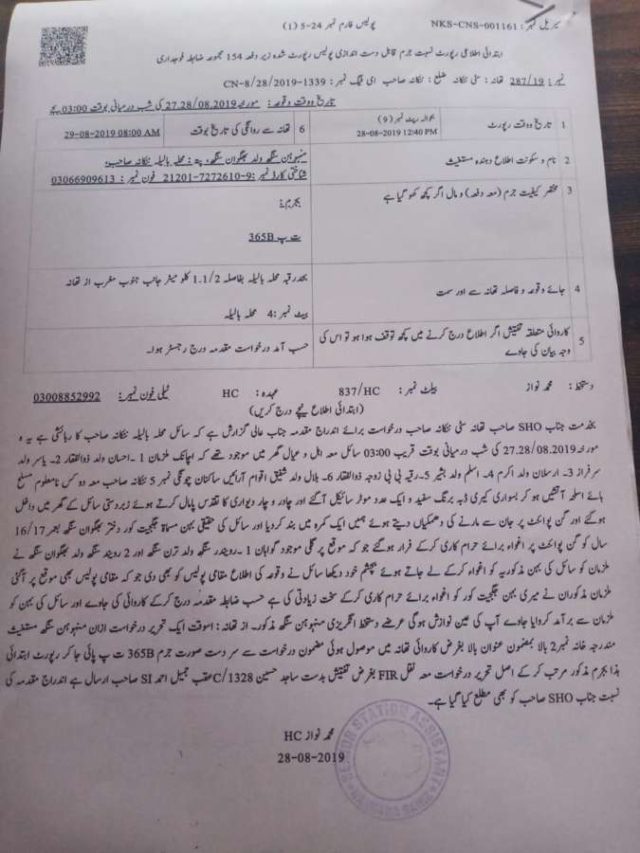 سیریل نمبر: NKS-CNS-001161
پولیس فارم نمبر 24-5 (1)
ابتدائی اطلاعی رپورٹ نسبت جرم قابل دست اندازی پولیس رپورٹ شدہ زیر دفعہ 154 مجموعہ ضابطہ فوجداری
نمبر: 287/19 تھانہ: سٹی ننکانہ ضلع: ننکانہ صاحب ای ٹیگ نمبر: CN-8/28/2019-1339
تاریخ و وقت وقوعہ: مورخہ 27.28/08.2019 کی شب درمیانی بوقت 03:00 بجے
1 تاریخ و وقت رپورٹ
بحوالہ رپٹ نمبر (9)
28-08-2019 12:40 PM
6 تھانہ سے روانگی کی تاریخ بوقت
29-08-2019 08:00 AM
2 نام و سکونت اطلاع دہندہ مستغیث
منموہن سنگھ ولد بھگوان سنگھ، پتہ: محلہ بالیلہ ننکانہ صاحب،
شناختی کارڈ نمبر: 21201-7272610-9 فون نمبر: 03066909613
3 مختصر کیفیت جرم (معہ دفعہ) و مال اگر کچھ کھو گیا ہے
بجرم:
ت پ 365B
4 جائے وقوعہ و فاصلہ تھانہ سے اور سمت
بحدرقبہ محلہ بالیلہ بفاصلہ 1.1/2 کلو میٹر جانب جنوب مغرب از تھانہ
بیٹ نمبر: 4 محلہ بالیلہ
5 کاروائی متعلقہ تفتیش اگر اطلاع درج کرنے میں کچھ توقف ہوا ہو تو اس کی
وجہ بیان کی جاوے
حسب آمد درخواست مقدمہ درج رجسٹر ہوا۔
دستخط: محمد نواز بیلٹ نمبر: 837/HC عہدہ: HC ٹیلی فون نمبر: 03008852992
(ابتدائی اطلاع نیچے درج کریں)
بخدمت جناب SHO صاحب تھانہ سٹی ننکانہ صاحب درخواست برائے اندراج مقدمہ جناب عالی گزارش ہے کہ سائل محلہ بالیلہ ننکانہ صاحب کا رہائشی ہے یہ کہ
مورخہ 27.28/08.2019 کی شب درمیانی بوقت قریب 03:00 سائل معہ اہل و عیال گھر میں موجود تھے کہ اچانک ملزمان 1۔ احسان ولد ذوالفقار 2۔ یاسر ولد
سرفراز 3۔ ارسلان ولد اکرم 4۔ اسلم ولد بشیر 5۔ رقیہ بی بی زوجہ ذوالفقار 6۔ بلال ولد شفیق اقوام آرائیں ساکنان چونگی نمبر 5 ننکانہ صاحب معہ دو کس نامعلوم مسلح
ہائے اسلحہ آتشیں ہو کر بسواری کیری ڈبہ برنگ سفید و ایک عدد موٹر سائیکل آگئے اور چادر و چار دیواری کا تقدس پامال کرتے ہوئے زبردستی سائل کے گھر میں داخل
ہوگئے اور گن پوائنٹ پر جان سے مارنے کی دھمکیاں دیتے ہوئے ہمیں ایک کمرہ میں بند کردیا اور سائل کی حقیقی بہن مسماۃ جگجیت کور دختر بھگوان سنگھ بعمر 16/17
سال کو گن پوائنٹ پر اغواء برائے حرام کاری کرکے فرار ہوگئے جو کہ موقع پر گلی موجود گواہان 1۔ رویندر سنگھ ولد ترن سنگھ اور 2 رویند سنگھ ولد بھگوان سنگھ نے
ملزمان کو سائل کی بہن مذکوریہ کو اغواء کرکے لے جاتے ہوئے بچشم خود دیکھا سائل نے وقوعہ کی اطلاع مقامی پولیس کو بھی دی جو کہ مقامی پولیس بھی موقع پر آگئی
ملزمان مذکوران نے میری بہن جگجیت کور کو اغواء برائے حرام کاری کرکے سخت زیادتی کی ہے حسب ضابطہ مقدمہ درج کرکے کاروائی کی جاوے اور سائل کی بہن کو
ملزمان سے برآمد کروایا جاوے آپ کی عین نوازش ہوگی عرضے دستخط انگریزی منموہن سنگھ مذکور۔ از تھانہ: اسوقت ایک تحریر درخواست ازان منموہن سنگھ مستغیث
مندرجہ خانہ نمبر2 بالا بمضمون عنوان بالا بغرض کاروائی تھانہ میں موصول ہوئی مضمون درخواست سے سردست صورت جرم 365B ت پ پائی جاکر رپورٹ ابتدائی
ہذا بجرم مذکور مرتب کرکے اصل تحریر درخواست معہ نقل FIR بغرض تفتیش بدست ساجد حسین 1328/C عقب جمیل احمد SI صاحب ارسال ہے اندراج مقدمہ کی
نسبت جناب SHO صاحب کو بھی مطلع کیا گیا ہے۔
محمد نواز HC
28-08-2019
STATION ASSISTANT